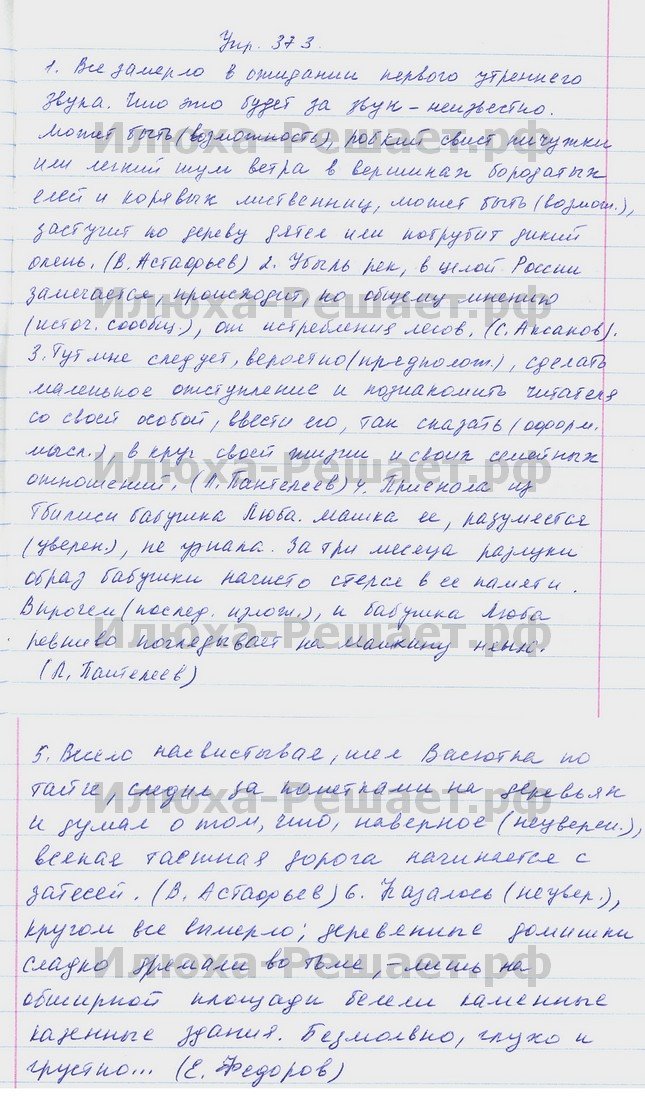 Упр. 373.
1. Все замерло в ожидании первого утреннего
звука. Что это будет за звук – неизвестно.
Может быть (возможность), робкий свист пичужки
или легкий шум ветра в вершинах бородатых
елей и корявых лиственниц, может быть (возмож.),
застучит по дереву дятел или потрубит дикий
олень. (В. Астафьев) 2. Убыль рек, в целой России
замечается, происходит, по общему мнению
(источ. сообщ.), от истребления лесов. (С. Аксаков).
3. Тут мне следует, вероятно (предполож.), сделать
маленькое отступление и познакомить читателя
со своей особой, ввести его, так сказать (оформ.
мысл.), в круг своей жизни и своих семейных
отношений. (Л. Пантелеев) 4. Приехала из
Тбилиси бабушка Люба. Машка ее, разумеется
(уверен.), не узнала. За три месяца разлуки
образ бабушки начисто стерся в ее памяти.
Впрочем (послед. излож.), и бабушка Люба
ревниво поглядывает на Машкину няню.
(Л. Пантелеев)
5. Весело насвистывая, шел Васютка по
тайге, следил за пометками на деревьях
и думал о том, что, наверное (неуверен.),
всякая таежная дорога начинается с
затесей. (В. Астафьев) 6. Казалось (неувер.),
кругом все вымерло; деревянные домишки
сладко дремали во тьме, – лишь на
обширной площади белели каменные
казенные здания. Безмолвно, глухо и
грустно... (Е. Федоров)
Илюха-Решает.рф
Илюха-Решает.рф
Илюха-Решает.рф
Илюха-Решает.рф
Илюха-Решает.рф
Илюха-Решает.рф